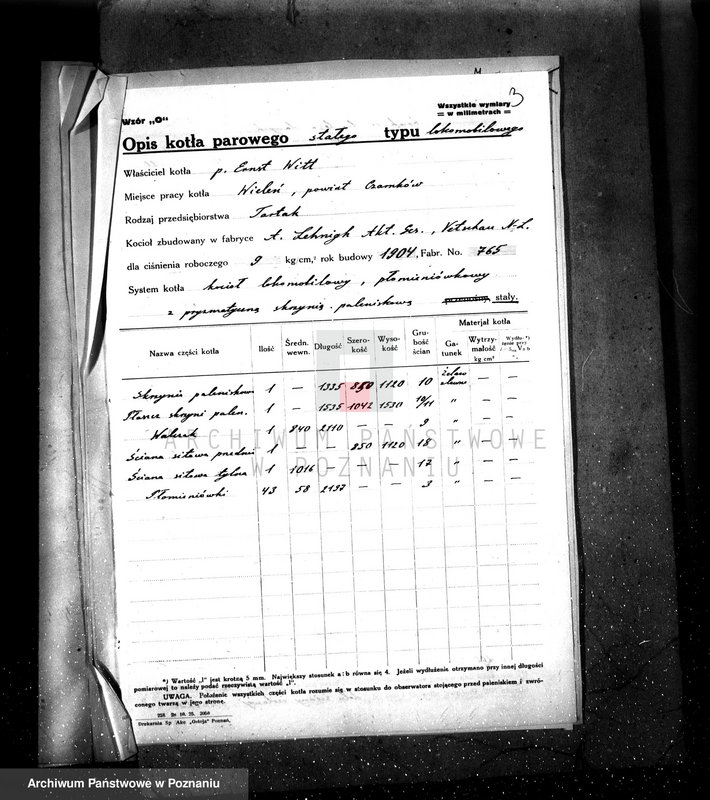 3
Wzór „O"
Wszystkie wymiary
= w milimetrach =
Opis kotła parowego stałego typu lokomobilowego
Właściciel kotła p. Ernst Witt
Miejsce pracy kotła Wieleń, powiat Czarnków
Rodzaj przedsiębiorstwa Tartak
Kocioł zbudowany w fabryce A. Lehnigk Akt. Ges., Vetschau N-L.
dla ciśnienia roboczego 9 kg/cm,² rok budowy 1904, Fabr. No. 765
System kotła kocioł lokomobilowy, płomieniówkowy
z pryzmatyczną skrzynią paleniskową stały.
Nazwa części kotła Ilość Średn. wewn. Długość Szerokość Wysokość Grubość ścian Materjał kotła Gatunek Wytrzymałość kg cm²
Skrzynia paleniskow. 1 — 1335 850 1120 10 żelazo zlewne — —
Płaszcz skrzyni palen. 1 — 1535 1042 1530 10/11 " — —
Walczak 1 840 2110 — — 9 " — —
Ściana sitowa przednia 1 — — 850 1120 18 " — —
Ściana sitowa tylna 1 1016 — — — 17 " — —
Płomieniówki 43 58 2137 — — 3 " — —
ARCHIWUM PAŃSTWOWE
W POZNANIU
*) Wartość „l" jest krotną 5 mm. Największy stosunek a:b równa się 4. Jeżeli wydłużenie otrzymano przy innej długości
pomiarowej to należy podać rzeczywistą wartość „l".
UWAGA. Położenie wszystkich części kotła rozumie się w stosunku do obserwatora stojącego przed paleniskiem i zwró-
conego twarzą w jego stronę.
Drukarnia Sp Akc „Ostoja" Poznań,
Archiwum Państwowe w Poznaniu